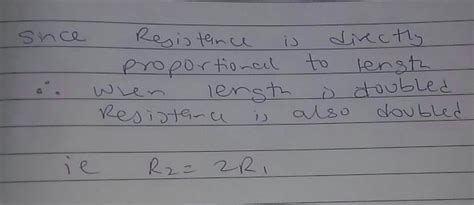 Since Resistance is directly
proportional to length
∴ when length is doubled
Resistance is also doubled
ie R₂ = 2R₁